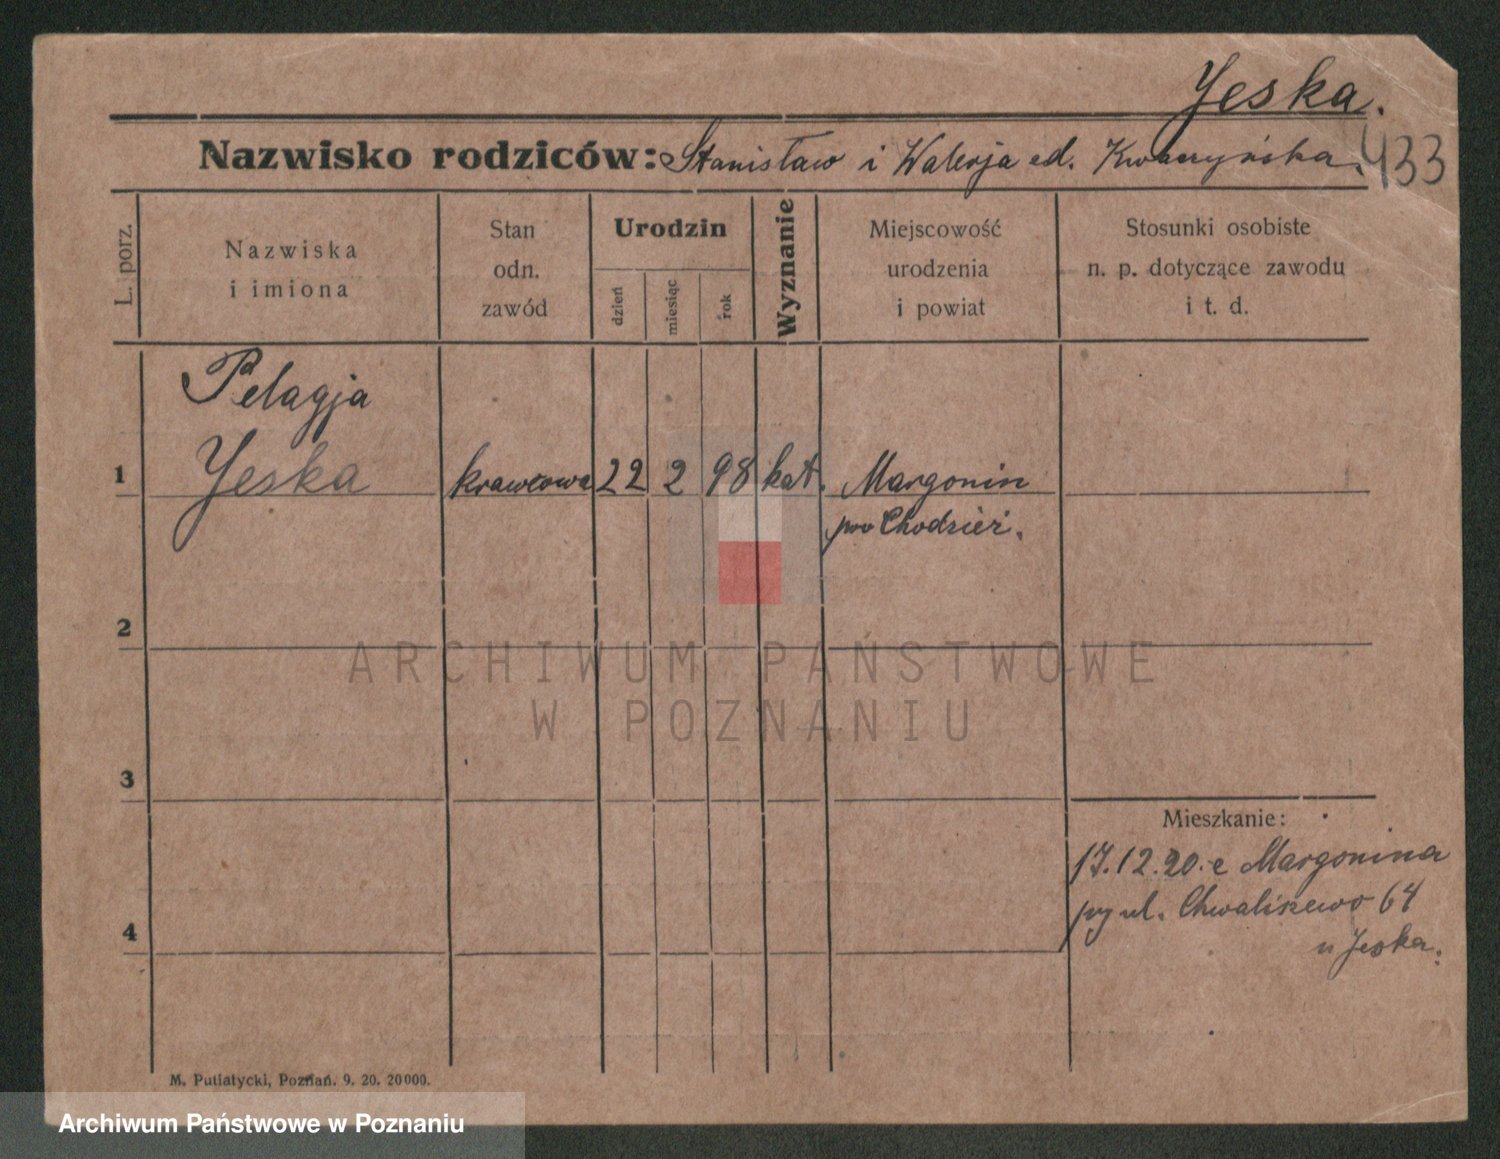 Jeska.
Nazwisko rodziców: Stanisław i Walerja
433
L. porz.
Nazwiska
i imiona
Stan
odn.
zawód
Urodzin
dzień
miesiąc
rok
Wyznanie
Miejscowość
urodzenia
i powiat
Stosunki osobiste
n. p. dotyczące zawodu
i t. d.
Pelagja
1 Jeska krawcowa 22 2 98 kat. Margonin
pow Chodzież.
2
ARCHIWUM PAŃSTWOWE
W POZNANIU
3
Mieszkanie:
17.12.20. z Margonina
ul. Chwaliszewo 64
4
u Jeska.
M. Putiatycki, Poznań. 9. 20. 20000.
Archiwum Państwowe w Poznaniu